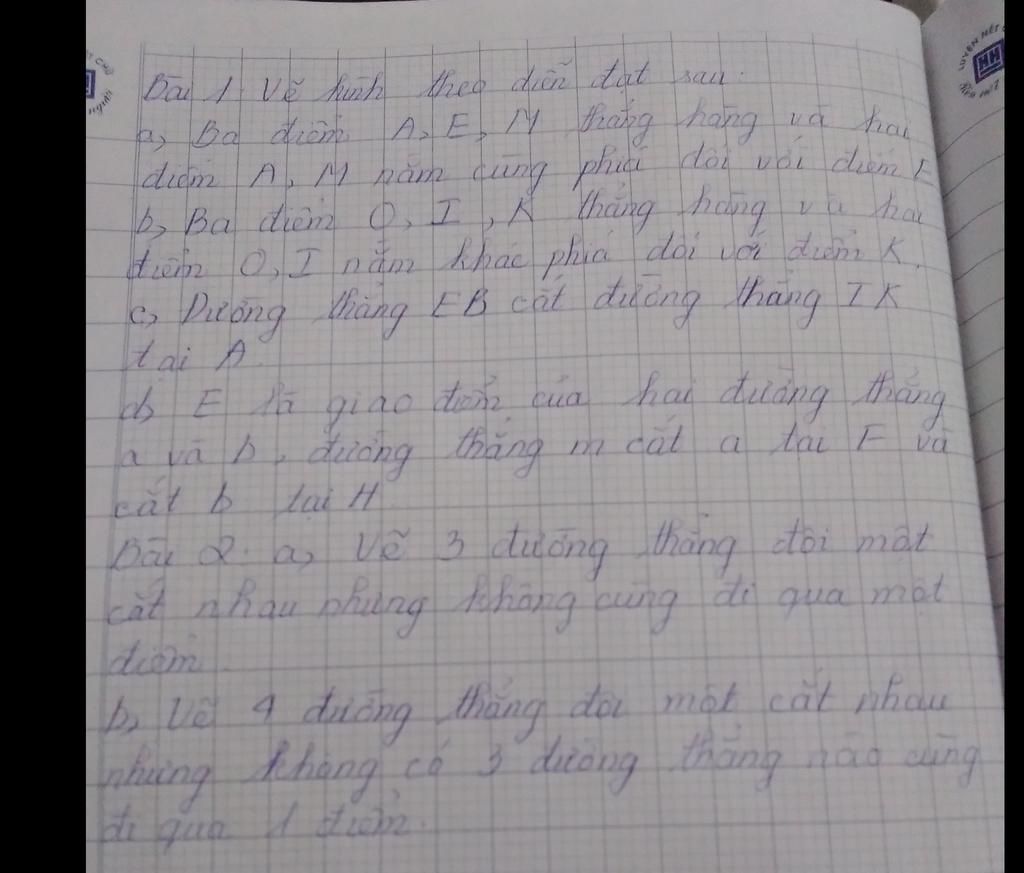 Bài 1. Vẽ hình theo diễn đạt sau:
a, Ba điểm A, E, M thẳng hàng và hai
điểm A, M nằm cùng phía đối với điểm E
b, Ba điểm O, I, K thẳng hàng và hai
điểm O, I nằm khác phía đối với điểm K.
c, Đường thẳng EB cắt đường thẳng IK
tại A.
d, E là giao điểm của hai đường thẳng
a và b, đường thẳng m cắt a tại F và
cắt b tại H.
Bài 2. a, Vẽ 3 đường thẳng đôi một
cắt nhau nhưng không cùng đi qua một
điểm.
b, Vẽ 4 đường thẳng đôi một cắt nhau
nhưng không có 3 đường thẳng nào cùng
đi qua 1 điểm.
LUYỆN NÉT
HH